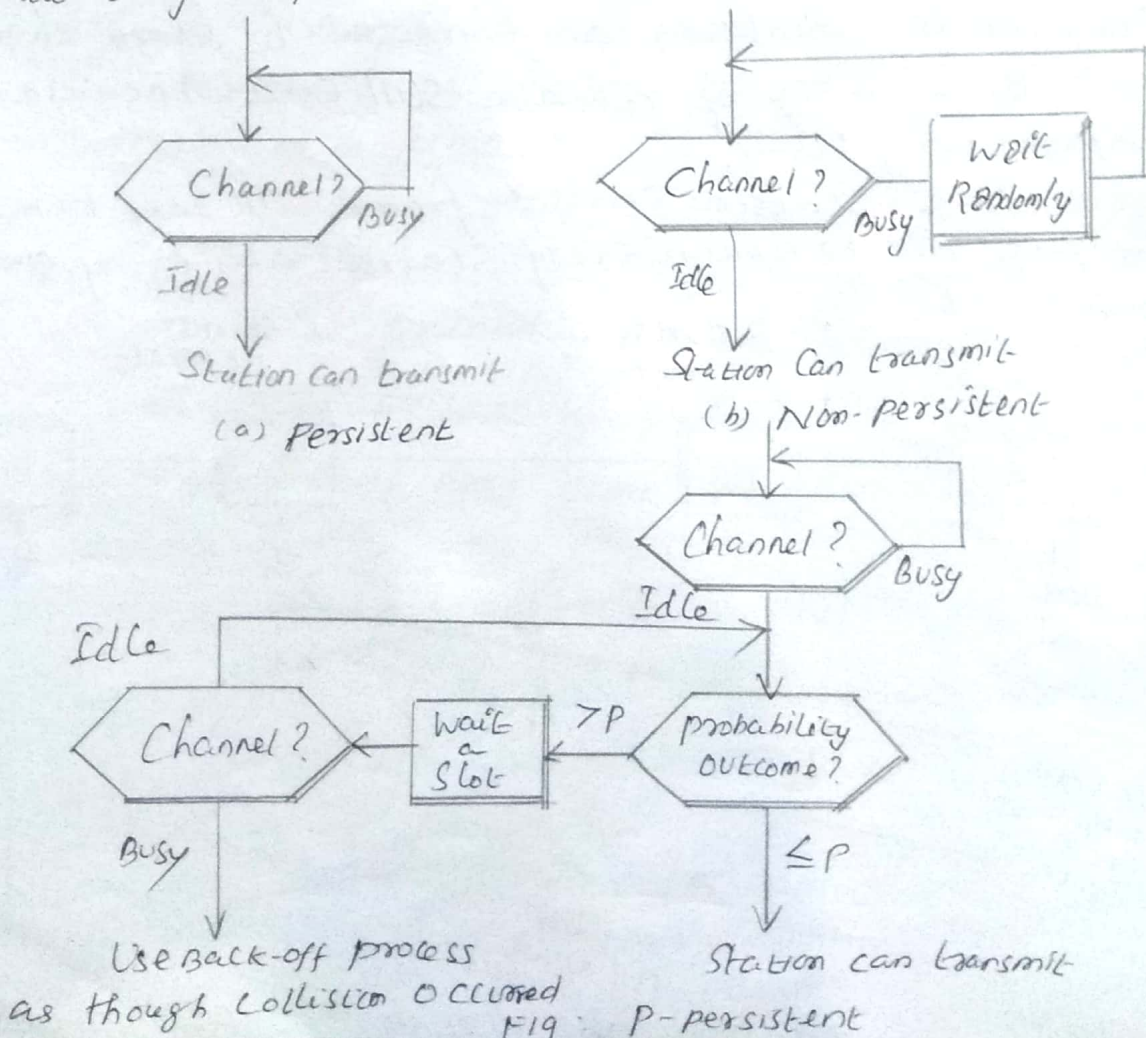 Channel?
Busy
Idle
Station can transmit
(a) Persistent
Channel ?
Busy
Wait
Randomly
Idle
Station Can transmit
(b) Non-persistent
Channel ?
Busy
Idle
Idle
Channel ?
Wait
a
Slot
>P
probability
outcome?
Busy
≤P
Use Back-off process
as though Collision Occurred
Station can transmit
Fig: P-persistent